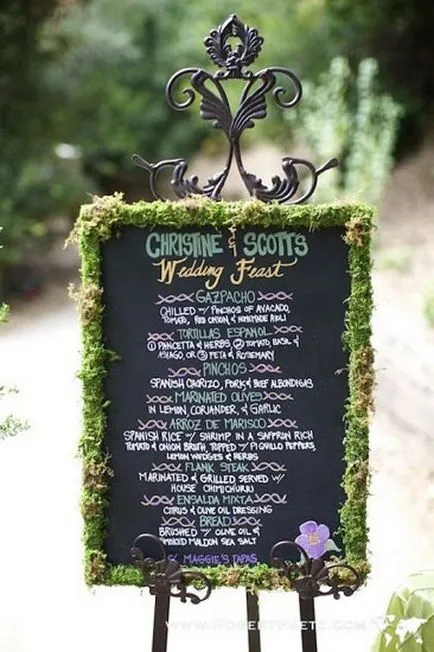 CHRISTINE & SCOTTS
Wedding Feast
GAZPACHO
CHILLED W/ PINCHOS OF AVACADO,
TOMATO, RED ONION & HOMEMADE AIOLI
TORTILLAS ESPANOL
① PANCETTA & HERBS, ② TOMATO, BASIL &
ASIAGO, OR ③ FETA & ROSEMARY
PINCHOS
SPANISH CHORIZO, PORK & BEEF ALBONDIGAS
MARINATED OLIVES
IN LEMON, CORIANDER, & GARLIC
ARROZ DE MARISCO
SPANISH RICE W/ SHRIMP IN A SAFFRON RICH
TOMATO & ONION BROTH, TOPPED W/ PIQUILLO PEPPERS,
LEMON WEDGES & HERBS
FLANK STEAK
MARINATED & GRILLED SERVED W/
HOUSE CHIMICHURRI
ENSALDA MIXTA
CITRUS & OLIVE OIL DRESSING
BREAD
BRUSHED W/ OLIVE OIL &
SMOKED MALDON SEA SALT
MAGGIE'S TAPAS